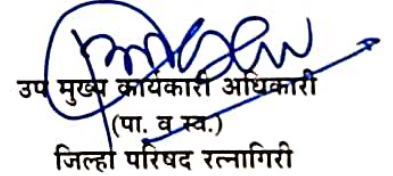 उप मुख्य कार्यकारी अधिकारी
(पा. व स्व.)
जिल्हा परिषद रत्नागिरी